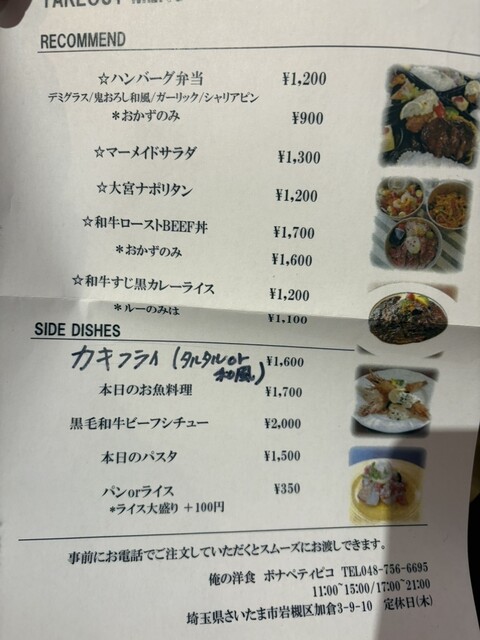 TAKEOUT
RECOMMEND
☆ハンバーグ弁当 ¥1,200
デミグラス/鬼おろし和風/ガーリック/シャリアピン
*おかずのみ ¥900
☆マーメイドサラダ ¥1,300
☆大宮ナポリタン ¥1,200
☆和牛ローストBEEF丼 ¥1,700
*おかずのみ ¥1,600
☆和牛すじ黒カレーライス ¥1,200
*ルーのみは ¥1,100
SIDE DISHES
カキフライ (タルタルor和風) ¥1,600
本日のお魚料理 ¥1,700
黒毛和牛ビーフシチュー ¥2,000
本日のパスタ ¥1,500
パンorライス ¥350
*ライス大盛り +100円
事前にお電話でご注文していただくとスムーズにお渡しできます。
俺の洋食 ボナペティピコ TEL048-756-6695
11:00~15:00/17:00~21:00
埼玉県さいたま市岩槻区加倉3-9-10 定休日(木)